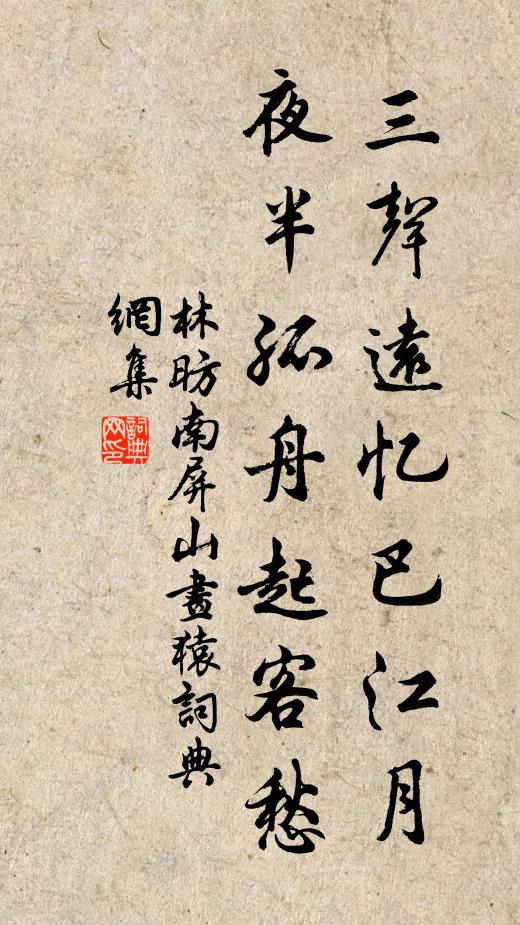 三聲遠忆巴江月
夜半孤舟起客愁
林昉南屏山畫猿詞典
網集
詞典
网印